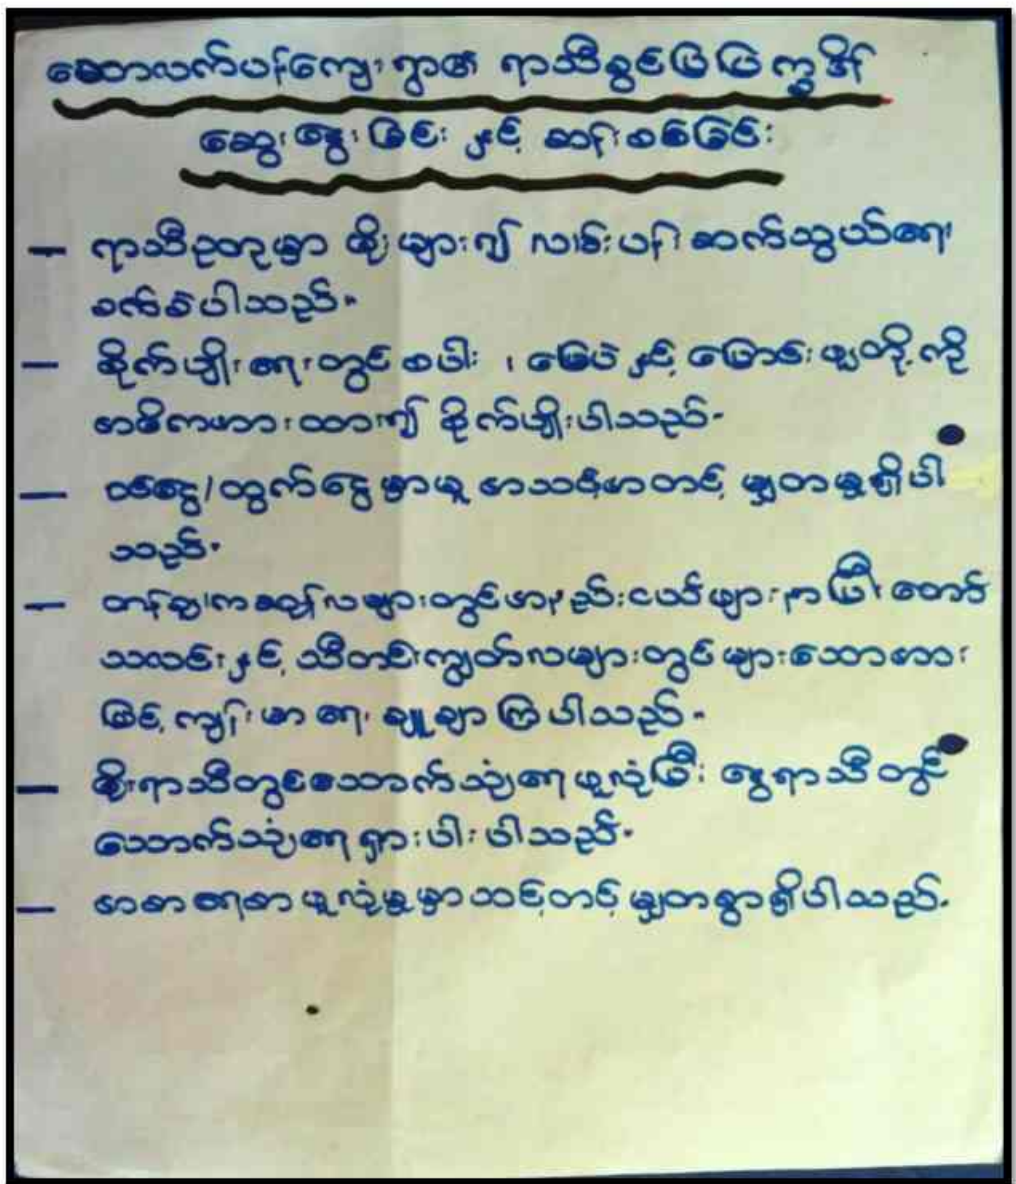 ဆောလက်ပန်ကျေးရွာ၏ ရာသီခွင်ပြပြက္ခဒိန်
ဆွေးနွေးခြင်းနှင့် ဆန်းစစ်ခြင်း
– ရာသီဥတုမှာ မိုးများ၍ လမ်းပန်းဆက်သွယ်ရေး
ခက်ခဲပါသည်။
– စိုက်ပျိုးရေးတွင် စပါး ၊ မြေပဲနှင့် ပြောင်းဖူးတို့ကို
အဓိကထား၍ စိုက်ပျိုးပါသည်။
– ဝင်ငွေ/ထွက်ငွေမှာမူ အသင့်အတင့် မျှတမှုရှိပါ
သည်။
– တန်ခူး၊ကဆုန်လများတွင် အနည်းငယ်ဖျားနာပြီး တော်
သလင်းနှင့် သီတင်းကျွတ်လများတွင် များသောအား
ဖြင့် ကျန်းမာရေး ချူချာကြပါသည်။
– မိုးရာသီတွင်သောက်သုံးရေဖူလုံပြီး နွေရာသီတွင်
သောက်သုံးရေရှားပါးပါသည်။
– အစာရေစာဖူလုံမှုမှာသင့်တင့်မျှတစွာရှိပါသည်။